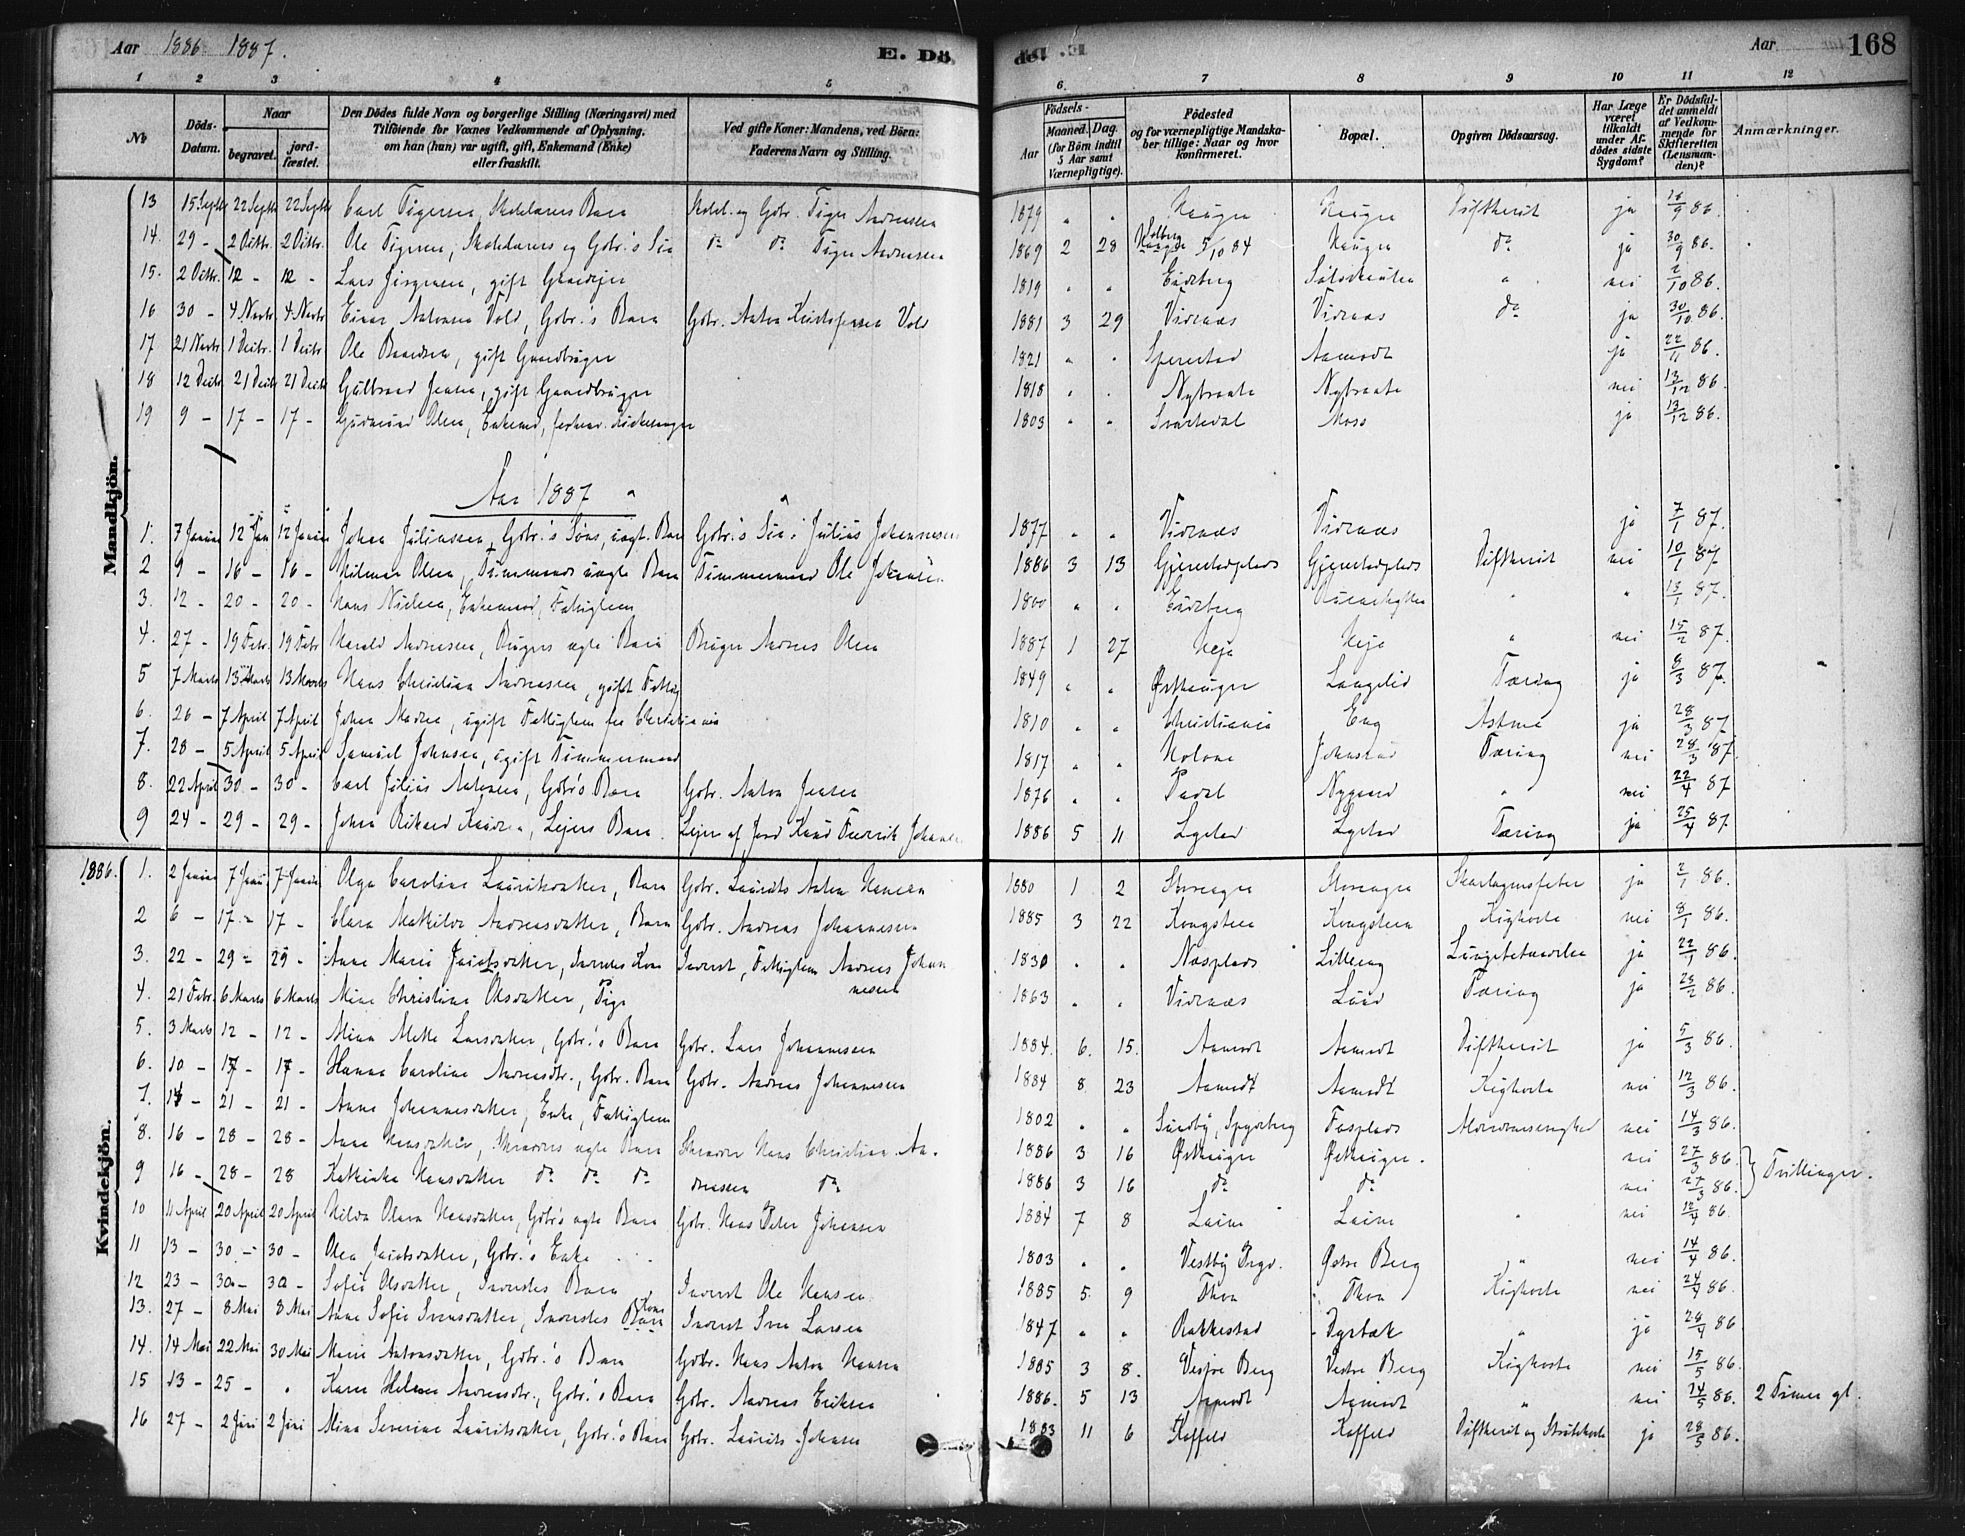 Aar 1886 1887.
E. Dö
Aar 168
1 2 3 4 5 6. 7 8 9 10 11 12
No
Döds-Datum.
Naar
begravet.
jord-fæstet.
Den Dödes fulde Navn og borgerlige Stilling (Næringsvei) med
Tilföiende for Voxnes Vedkommende af Oplysning,
om han (hun) var ugift, gift, Enkemand (Enke)
eller fraskilt.
Ved gifte Koner: Mandens, ved Börn:
Faderens Navn og Stilling.
Födsels-
Aar
Maaned. Dag.
(for Börn indtil
5 Aar samt
Værnepligtige).
Födested
og for værnepligtige Mandska-
ber tillige: Naar og hvor
konfirmeret.
Bopæl.
Opgiven Dödsaarsag.
Har Læge
været
tilkaldt
under Af-
dödes sidste
Sygdom?
Er Dödsfal-
det anmeldt
af Vedkom-
mende for
Skifteretten
(Lensman-
den)?
Anmærkninger.
Mandkjön.
13 15 Septbr 22 Septbr 22 Septbr Carl Tigersen, Skolelærers Barn Skolel. og Gbr. Tiger Andreasen 1879 " " Haugen Haugen Diftherit ja 16/9 86.
14. 29 - 2 Octbr. 2 Octbr. Ole Tigersen, Skolelærers og Gbr.'s Søn do do Tiger Andreasen 1869 2 28 5/10 84 Haugen do ja 30/9 86.
15. 2 Octbr. 12 - 12 - Lars Jörgensen, gift Gaardejer 1819 " " Eidsberg " nei 2/10 86.
16 30 - 4 Novbr 4 Novbr Einar Antonsen Vold, Gbr.'s Barn Gbr. Anton Kristofersen Vold 1881 3 29 Vidnæs Vidnæs do ja 30/10 86.
17 21 Novbr 1 Decbr. 1 Decbr Ole gift Gaardbruger 1821 " " Sperestad Aamodt ja 22/11 86.
18 12 Decbr 21 Decbr 21 Decbr Gulbrand Jensen, gift Gaardbruger 1818 " " Nybraate Nybraate nei 13/12 86
19 9 - 17 - 17 - Gudmund Olsen, Enkemd, 1803 " " Svartedal Moss ja 13/12 86.
Aar 1887
1. 7 Januar 12 Jan 12 Januar Johan Juliussen, Gbr.'s Søns, uægt. Barn Gbr.'s Søn: Julius Johannesen 1877 " " Vidnæs Vidnæs ja 7/1 87.
2 9 - 16 - 16 - Hilmar Olsen, Tømmermands ægte Barn Tømmermand Ole Johansen 1886 3 13 Gjerestadplads Gjerestadplads Diftherit nei 10/1 87
3. 12 - 20 - 20 - Hans Nielsen, Enkemand, Fattiglem 1800 " " Eidsberg " " 13/1 87.
4. 27 - 19 Febr. 19 Febr Harald Andreasen, Brugers ægte Barn Bruger Andreas Olsen 1887 1 27 Heja Heja " nei 15/2 87.
5 7 Marts 13 Marts 13 Marts Hans Christian Andreasen, gift Fattig 1849 " " Østhaugen Langelid Tæring ja 8/3 87.
6. 26 - 7 April 7 April Johan Madsen, ugift Fattiglem fra Christiania 1810 " " Christiania Eng Astma ja 28/3 87
7. 28 - 5 April 5 April Samuel Johnsen, ugift Tømmermand 1817 " " Holone Johnsrud Tæring nei 28/3 87.
8. 22 April 30 - 30 - Carl Julius Antonsen, Gbr's Barn Gbr. Anton Jensen 1876 " " Nygaard " nei 22/4 87
9 24 - 29 - 29 - Johan Rikard Knudsen, Lejers Barn Lejer af Jord Knud Fredrik Johansen 1886 5 11 Lystad Lystad Tæring ja 25/4 87
Kvindekjön.
1886. 1. 2 Januar 7 Januar 7 Januar Olga Caroline Lauritsdatter, Barn Gbr. Laurits Anton Hansen 1880 1 2 Skarlagensfeber ja 2/1 86.
2 6 - 17 - 17 - Clara Mathilde Andreasdatter, Barn Gbr. Andreas Johannesen 1885 3 22 Kongsteen Kongsteen Kighoste nei 8/1 86.
3. 22 - 29 - 29 - Anne Marie Jacobsdatter, Inderstes Kone Inderst, Fattiglem Andreas Johannesen 1830 " " Næsplads Lilleng Lungebetændelse ja 22/1 86.
4. 21 Febr. 6 Marts 6 Marts Mina Christine Olsdatter, Pige 1863 " " Vidnæs Lund Tæring ja 23/2 86.
5. 3 Marts 12 - 12 - Mina Mette Larsdatter, Gbr.'s Barn Gbr. Lars Johannesen 1884. 6. 15. Aamodt Aamodt Diftherit ja 5/3 86.
6. 10 - 17 - 17 - Hanna Caroline Andreasdtr., Gbr. Barn Gbr. Andreas Johannesen 1884 8 23 Aamodt Aamodt Kighoste nei 12/3 86.
7. 14 - 21 - 21 - Anne Johannesdatter, Enke, Fattiglem 1802 " " Sundby, Spydeberg Fosplads Alderdomssvaghed nei 14/3 86.
8. 16 - 28 - 28 - Anna Hansdatter, Skrædders ægte Barn Skrædder Hans Christian An- 1886 3 16 Østhaugen Østhaugen. nei 27/3 86.
9 16 - 28 - 28 Kathinka Hansdatter do do do dreassen do 1886 3 16 do do nei 27/3 86. } Tvillinger.
10 11 April 20 April 20 April Hilda Olava Hansdatter, Gbr's ægte Barn Gbr. Hans Peter Johansen 1884 7 8 " nei 12/4 86.
11 13 - 30 - 30 - Olea Jacobsdatter, Gbr.'s Enke 1803 " " Vestby Prgd. Østre Berg " nei 14/4 86.
12 23 - 30 - 30 - Sofie Olsdatter, Inderstes Barn Inderst Ole Hansen 1885 5. 9 Thon Thon Kighoste nei 24/4 86.
13. 27 - 8 Mai 8 Mai Anne Sofie Svensdatter, Inderstes Barn Kone Inderst Sven Larsen 1847 " " Rakkestad Dyrbæk " ja 28/4 86
14. 14 Mai 22 Mai 30 Mai Marie Antonsdatter, Gbr.'s Barn Gbr. Hans Anton Hansen 1885 3 8. Vestre Berg Vestre Berg Kighoste nei 15/5 86.
15 13 - 25 - " Karen Helene Andreasdtr., Gbr.'s Barn Gbr. Andreas Eriksen 1886. 5 13 Aamodt Aamodt " nei 14/5 86. 2 Timer gl.
16 27 - 2 Juni 2 Juni Mina Severine Lauritsdatter, Gbr.'s Barn Gbr. Laurits Johnsen 1883 11 6 Kaffeld Kaffeld Diftherit og Strubehoste ja 28/5 86.